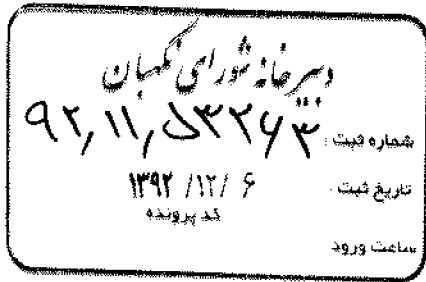 دبیرخانه شورای نگهبان
شماره ثبت : ۹۲,۱۱,۵۳۲۶۳
تاریخ ثبت : ۱۳۹۲ /۱۲/ ۶
کد پرونده
ساعت ورود